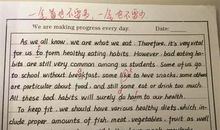 一个也不容多，一个也不容少
We are making progress every day. Date:
As we all know, we are what we eat. Therefore, it's very vital
for us to form healthy eating habits. However, bad eating ha-
bits are still very common among us students. Some of us go
to school without breakfast, some like to have snacks, some others
are particular about food, and still some eat or drink too much.
All these bad habits will surely do harm to our health.
To keep fit, we should have various healthy diets, which in-
clude proper amounts of fish, meat, vegetables, fruit as well